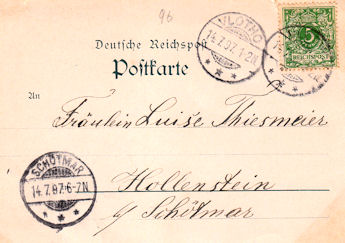 96
VLOTHO
14.7.97. 1-2N
5
REICHSPOST
Deutsche Reichspost
Postkarte
An
Fräulein Luise Thiesmeier
SCHÖTMAR
14.7.97. 6-7N
Hollenstein
b/ Schötmar